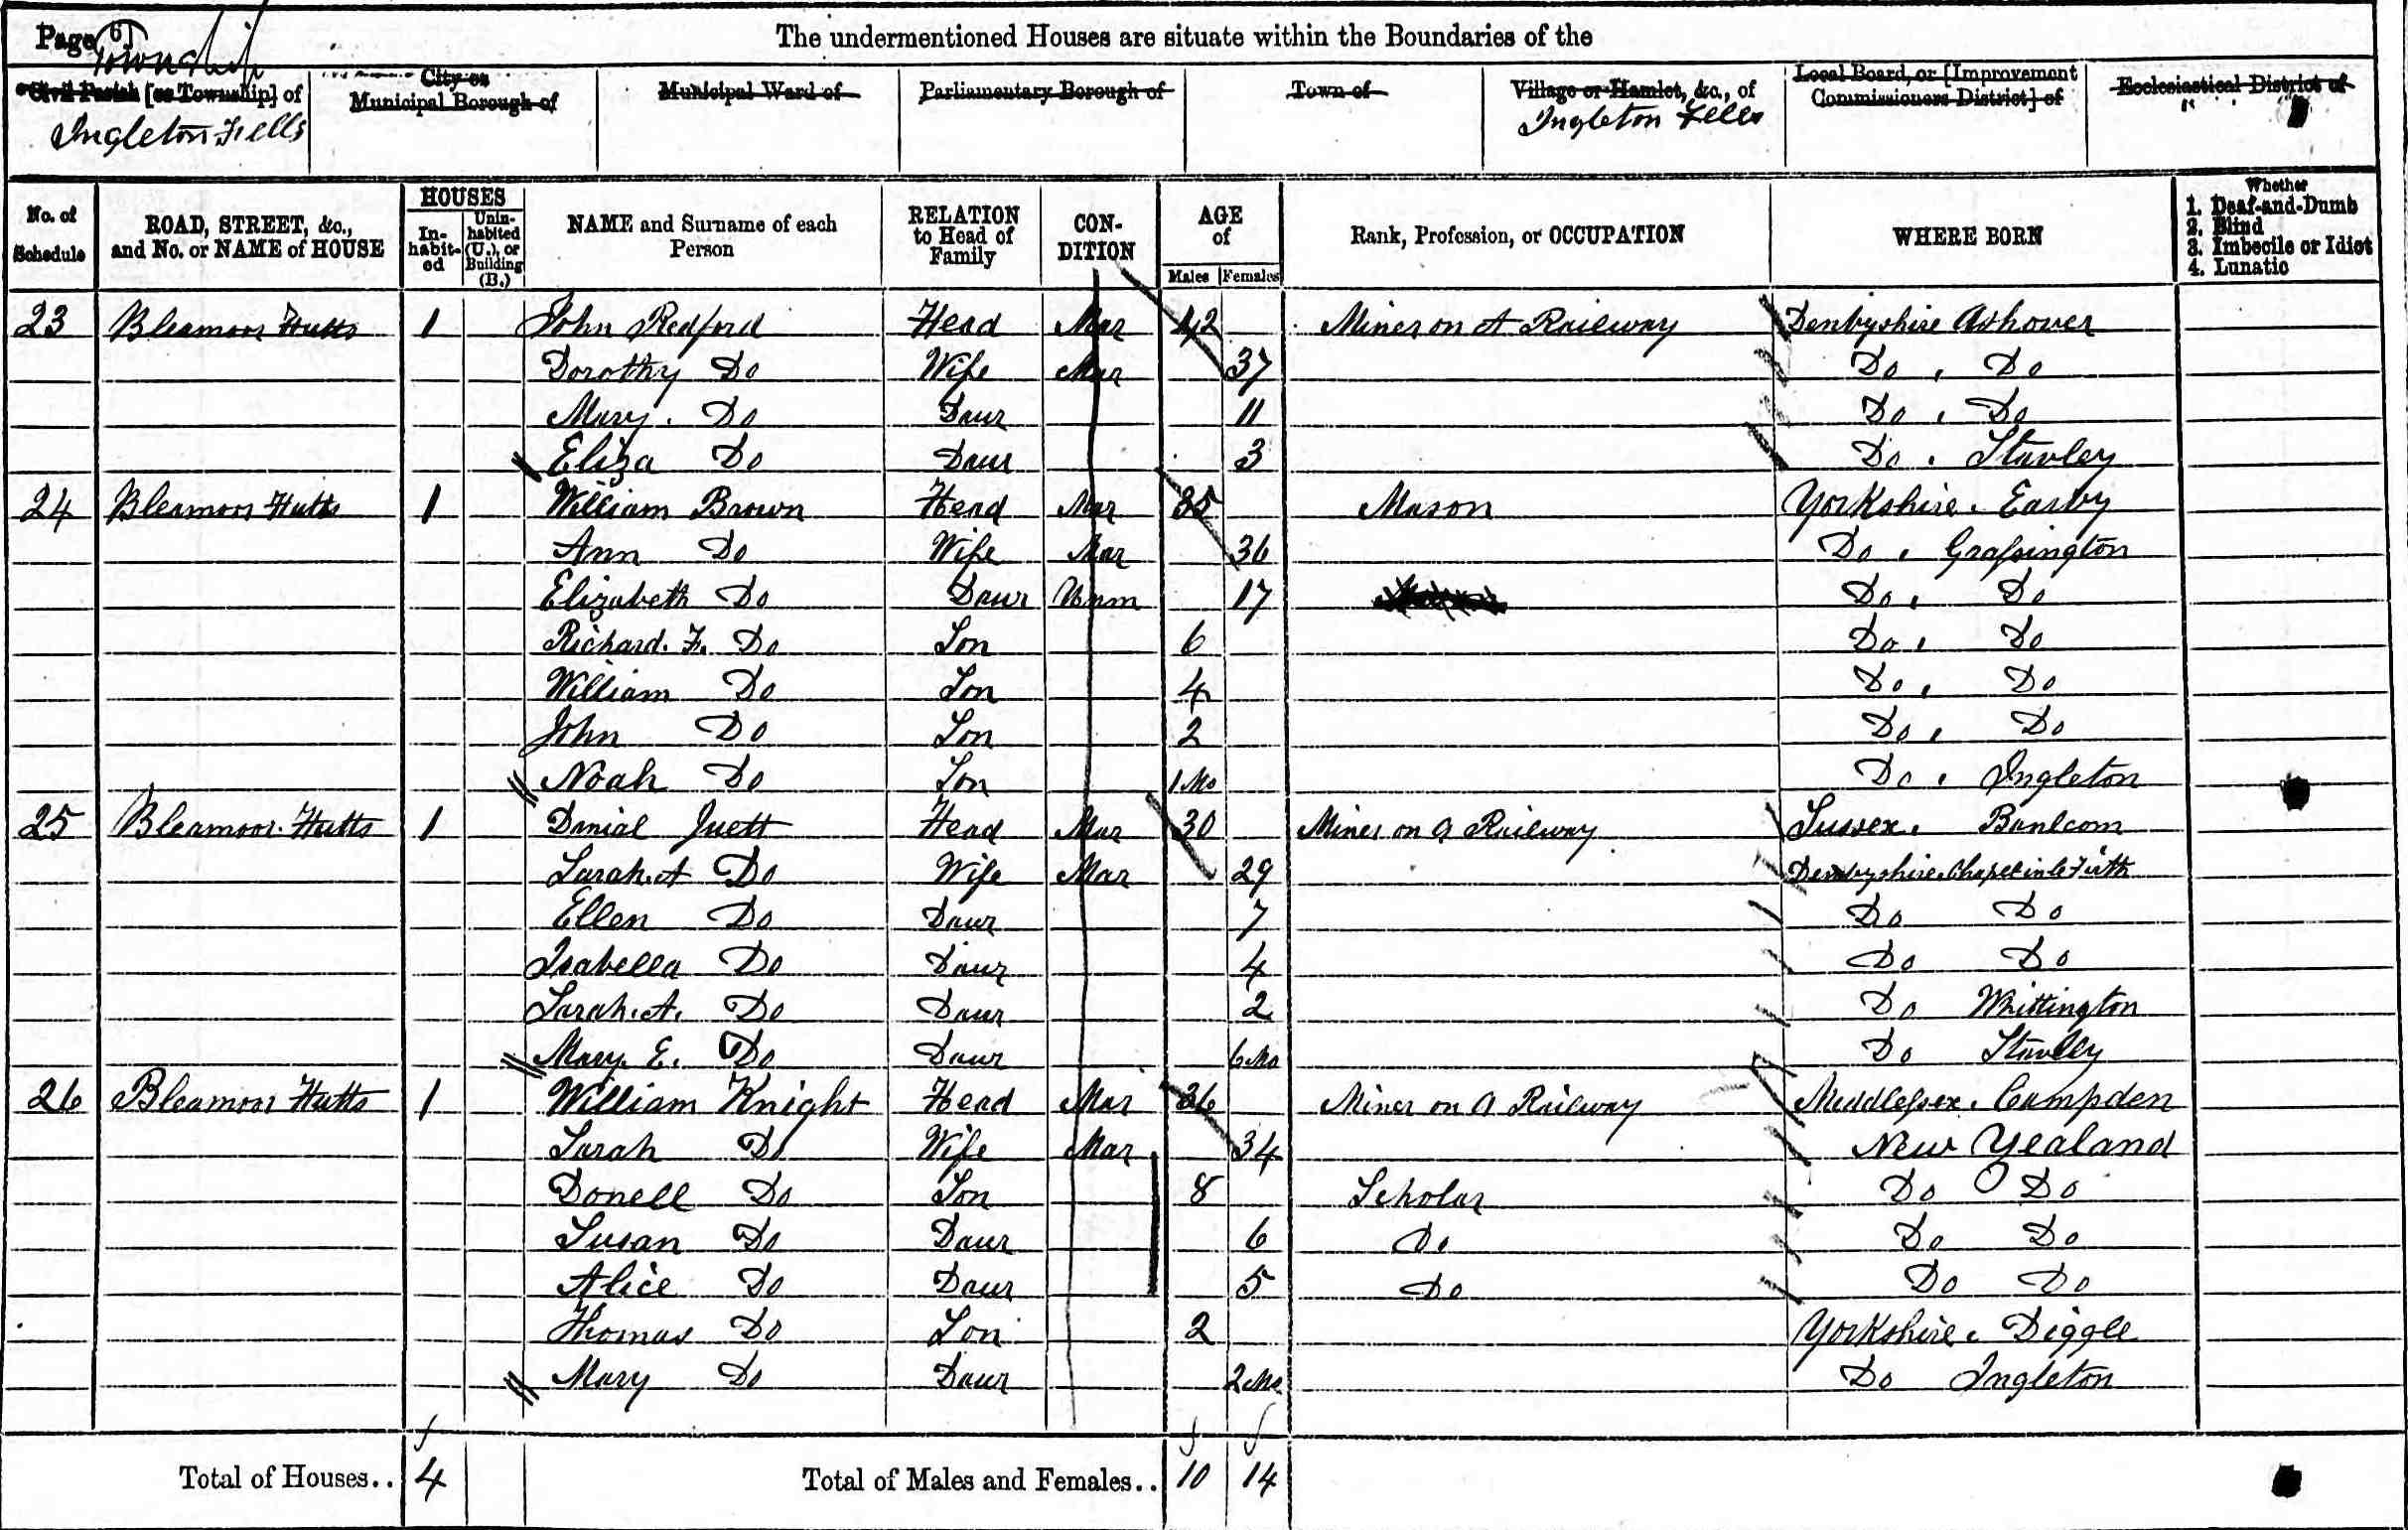 Page 6]
The undermentioned Houses are situate within the Boundaries of the
Township
Civil Parish [or Township] of
Ingleton Fells
City or
Municipal Borough of
Municipal Ward of
Parliamentary Borough of
Town of
Village or Hamlet, &c., of
Ingleton Fells
Local Board, or [Improvement
Commissioners District] of
Ecclesiastical District of
No. of
Schedule
ROAD, STREET, &c.,
and No. or NAME of HOUSE
HOUSES
In-
habit-
ed
Unin-
habited
(U.), or
Building
(B.)
NAME and Surname of each
Person
RELATION
to Head of
Family
CON-
DITION
AGE
of
Males Females
Rank, Profession, or OCCUPATION
WHERE BORN
Whether
1. Deaf-and-Dumb
2. Blind
3. Imbecile or Idiot
4. Lunatic
23 Bleamoor Hutts 1 John Redford Head Mar 42 Miner on A Railway Derbyshire Ashover
Dorothy Do Wife Mar 37 Do , Do
Mary . Do Daur 11 Do , Do
Eliza Do Daur 3 Do . Stavley
24 Bleamoor Hutts 1 William Brown Head Mar 35 Mason Yorkshire . Earby
Ann Do Wife Mar 36 Do , Grassington
Elizabeth Do Daur Unm 17 Do , Do
Richard. F. Do Son 6 Do , Do
William Do Son 4 Do , Do
John Do Son 2 Do , Do
Noah Do Son 1 Mo Do . Ingleton
25 Bleamoor Hutts 1 Danial Juett Head Mar 30 Miner on a Railway Sussex . Banlcom
Sarah. A Do Wife Mar 29 Derbyshire. Chapel in le Firth
Ellen Do Daur 7 Do Do
Isabella Do Daur 4 Do Do
Sarah. A. Do Daur 2 Do Whittington
Mary. E. Do Daur 6 Mo Do Stavley
26 Bleamoor Hutts 1 William Knight Head Mar 36 Miner on A Railway Middlesex . Campden
Sarah Do Wife Mar 34 New Yealand
Donell Do Son 8 Scholar Do Do
Susan Do Daur 6 Do Do Do
Alice Do Daur 5 Do Do Do
Thomas Do Son 2 Yorkshire . Diggle
Mary Do Daur 2 Mo Do Ingleton
Total of Houses.. 4 Total of Males and Females.. 10 14